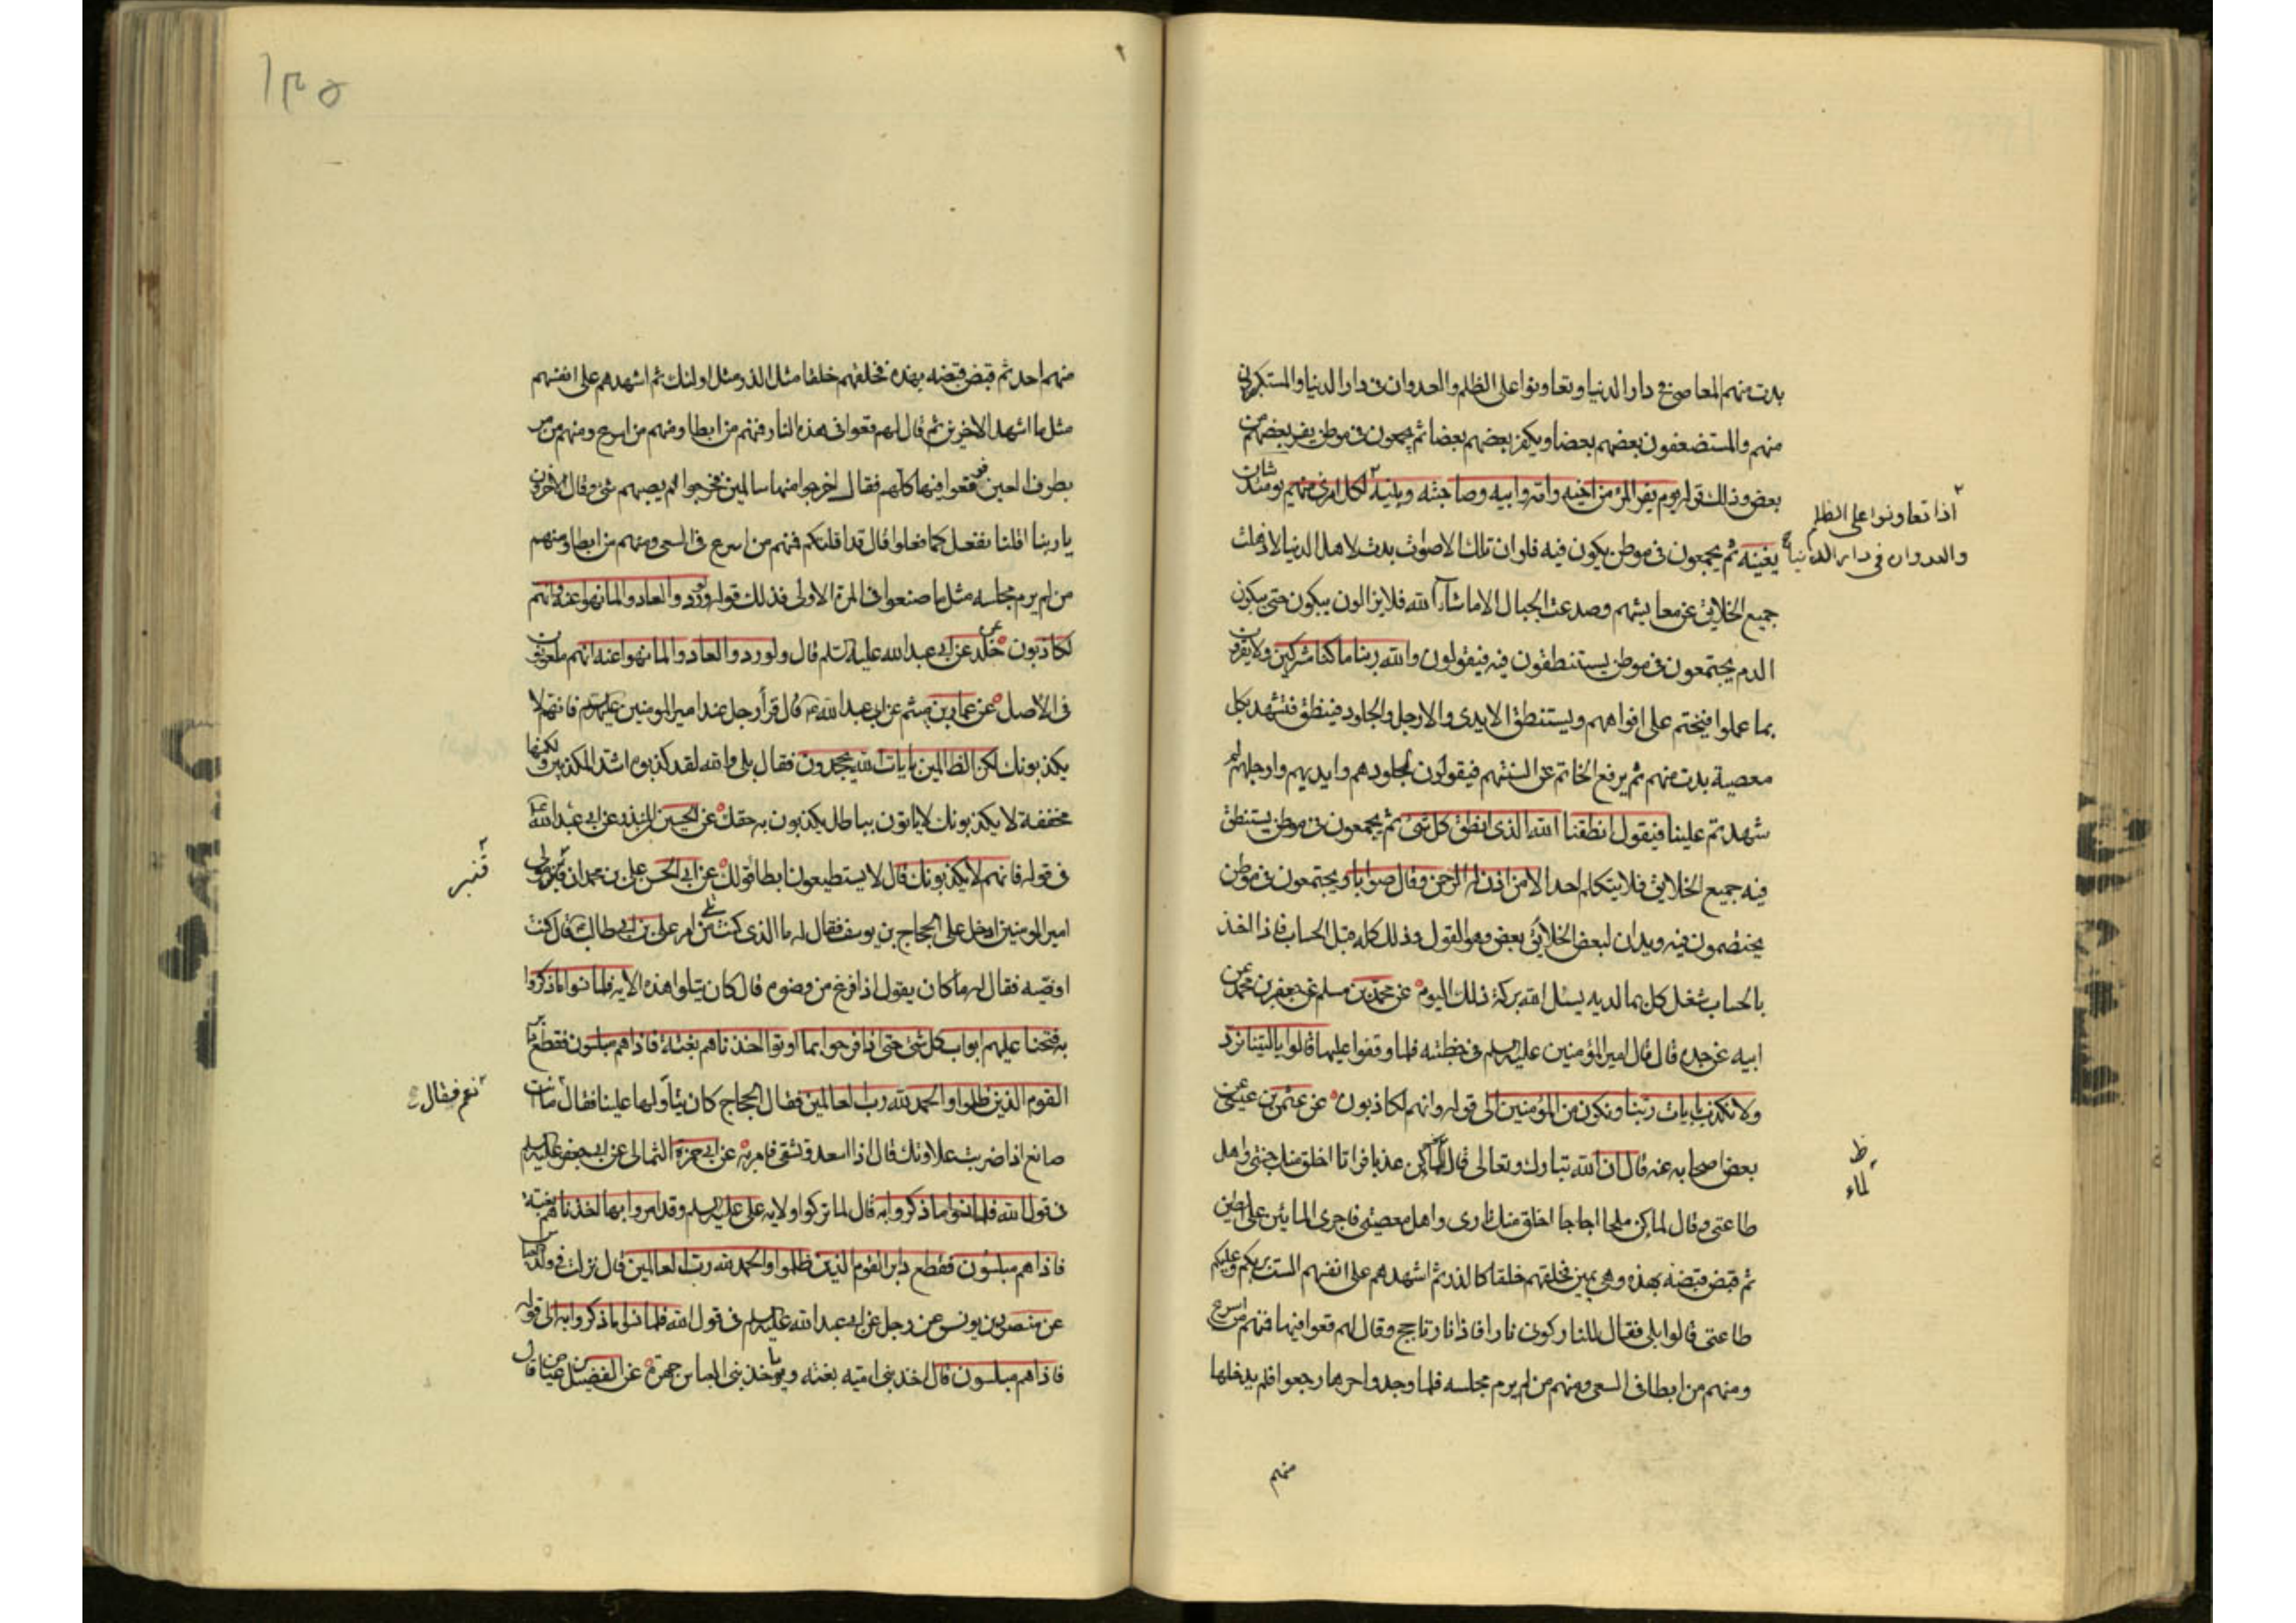 بدت منهم المعاصي في دار الدنيا وتعاونوا على الظلم والعدوان في دار الدنيا والمستكبرون
منهم والمستضعفون بعضهم بعضا ويكفر بعضهم بعضا ثم يجمعون في موطن يفر بعضهم من
بعض وذلك قوله يوم يفر المرء من اخيه وامه وابيه وصاحبته وبنيه لكل امرئ منهم يومئذ شان
اذا تعاونوا على الظلم
والعدوان في دار الدنيا
يغنيه ثم يجمعون في موطن يبكون فيه فلو ان تلك الاصوات بدت لاهل الدنيا لاذهلت
جميع الخلايق عن معايشهم وصدعت الجبال الا ما شاء الله فلا يزالون يبكون حتى يبكون
الدم يجتمعون في موطن يستنطقون فيه فيقولون والله ربنا ما كنا مشركين ولا يقرون
بما عملوا فيختم على افواههم ويستنطق الايدي والارجل والجلود فينطق فتشهد بكل
معصية بدت منهم ثم يرفع الخاتم عن السنتهم فيقولون لجلودهم وايديهم وارجلهم لم
شهدتم علينا فيقول انطقنا الله الذي انطق كل شئ ثم يجمعون في موطن يستنطق
فيه جميع الخلايق فلا يتكلم احد الا من اذن له الرحمن وقال صوابا ويجتمعون في موطن
يختصمون فيه ويدان لبعض الخلائق بعض وهو القول وذلك كله قبل الحساب فاذا اخذ
بالحساب شغل كل بما لديه يسئل الله بركة ذلك اليوم عن محمد بن مسلم عن جعفر بن محمد عن
ابيه عن جده قال قال امير المؤمنين عليه السلم في خطبته فلما وقفوا عليها قالوا يا ليتنا نرد
ولا نكذب بايات ربنا ونكون من المؤمنين الى قوله وانهم لكاذبون عن عثمن بن عيسى عن
بعض اصحابه عنه قال ان الله تبارك وتعالى قال لماء كن عذبا فراتا اخلق منك جنتي واهل
ظ
لماء
طاعتي وقال لماء كن ملحا اجاجا اخلق منك ناري واهل معصيتي فاجرى المائين على الطين
ثم قبض قبضة بهذه وهي يمين فخلقهم خلقا كالذر ثم اشهدهم على انفسهم الست بربكم وعليكم
طاعتي قالوا بلى فقال للنار كوني نارا فاذا نار تاجج وقال لهم قعوا فيها فمنهم من اسرع
ومنهم من ابطا في السعي ومنهم من لم يرم مجلسه فلما وجدوا حرها رجعوا فلم يدخلها
منهم
١٣٥
منهم احد ثم قبض قبضة بهذه فخلقهم خلقا مثل الذر مثل اولئك ثم اشهدهم على انفسهم
مثل ما اشهد الاخرين ثم قال لهم قعوا في هذه النار فمنهم من ابطا ومنهم من اسرع ومنهم من مر
بطرف العين فوقعوا فيها كلهم فقال اخرجوا منها سالمين فخرجوا لم يصبهم شئ وقال الاخرون
يا ربنا اقلنا نفعل كما فعلوا قال قد اقلتكم فمنهم من اسرع في السعي ومنهم من ابطا ومنهم
من لم يرم مجلسه مثل ما صنعوا في المرة الاولى فذلك قوله ولو ردوا لعادوا لما نهوا عنه وانهم
لكاذبون خلد عن ابي عبد الله عليه السلم قال ولو ردوا لعادوا لما نهوا عنه انهم ملعونون
في الاصل عن عمار بن ميثم عن ابي عبد الله قال قرأ رجل عند امير المومنين عليه السلم فانهم لا
يكذبونك لكن الظالمين بايات الله يجحدون فقال بلى والله لقد كذبوه اشد المكذبين ولكنها
مخففة لا يكذبونك لا ياتون بباطل يكذبون به حقك عن الحسين المنذر عن ابي عبد الله
في قوله فانهم لا يكذبونك قال لا يستطيعون ابطا قولك عن ابي الحسن علي بن محمد ان قنبر مولى
قنبر
امير المومنين ادخل على الحجاج بن يوسف فقال له ما الذي كنت تلي من امر علي بن ابي طالب قال كنت
اوضيه فقال له ما كان يقول اذا فرغ من وضوئه قال كان يتلوا هذه الاية فلما نسوا ما ذكروا
به فتحنا عليهم ابواب كل شئ حتى اذا فرحوا بما اوتوا اخذناهم بغتة فاذا هم مبلسون فقطع دابر
القوم الذين ظلموا والحمد لله رب العالمين فقال الحجاج كان يتأولها علينا فقال ما انت
نعم فقال
صانع اذا ضربت علاوتك قال اذا اسعد وتشقى فامر به عن ابي حمزة الثمالي عن ابي جعفر عليه السلم
في قول الله فلما نسوا ما ذكروا به قال لما تركوا ولاية علي عليه السلم وقد امروا بها اخذناهم بغتة
فاذا هم مبلسون فقطع دابر القوم الذين ظلموا والحمد لله رب العالمين قال نزلت في ولد العباس
عن منصور بن يونس عن رجل عن ابي عبد الله عليه السلم في قول الله فلما نسوا ما ذكروا به الى قوله
فاذا هم مبلسون قال اخذ بني امية بغتة ويؤخذ بني العباس جهرة عن الفضيل بن عياض قال